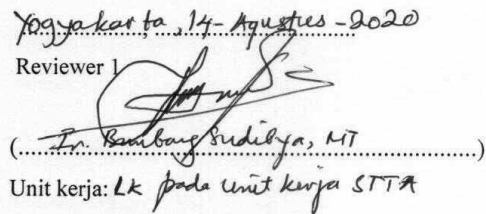 Yogyakarta, 14-Agustus-2020
Reviewer 1
(Ir. Bambang Sudibya, MT)
Unit kerja: LK pada unit kerja STTA